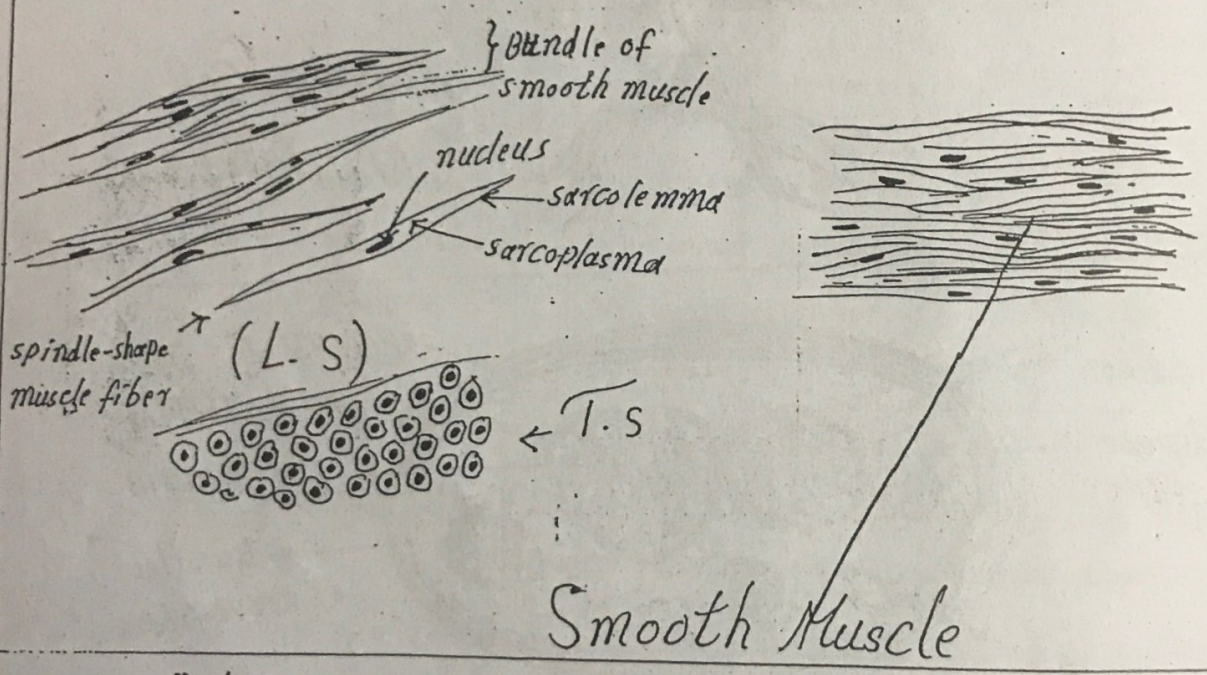 } Bundle of
smooth muscle
nucleus
sarcolemma
sarcoplasma
spindle-shape
muscle fiber
(L-S)
T.S
Smooth Muscle